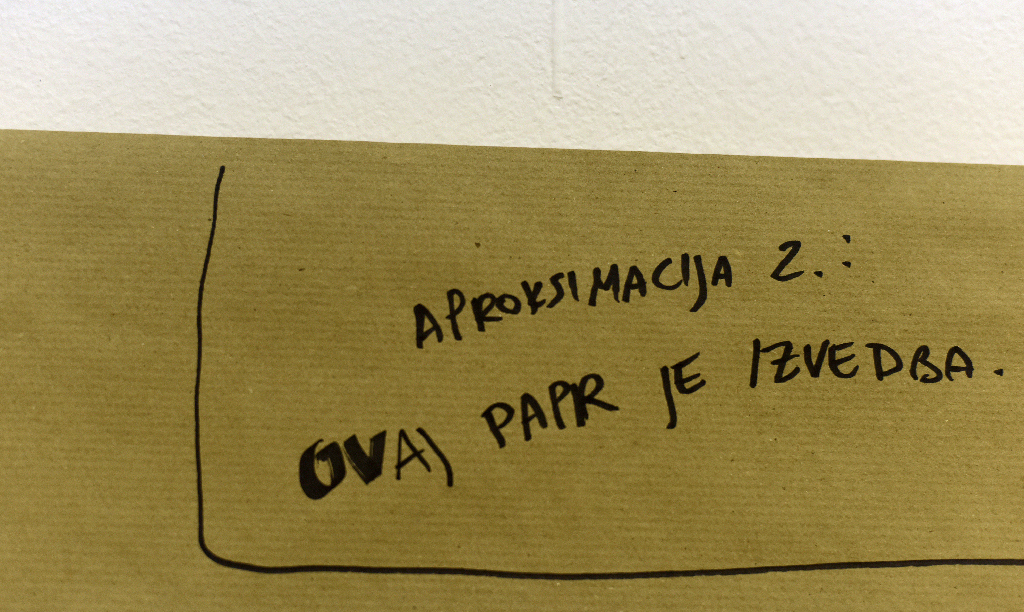 APROKSIMACIJA 2.:
OVAJ PAPR JE IZVEDBA.